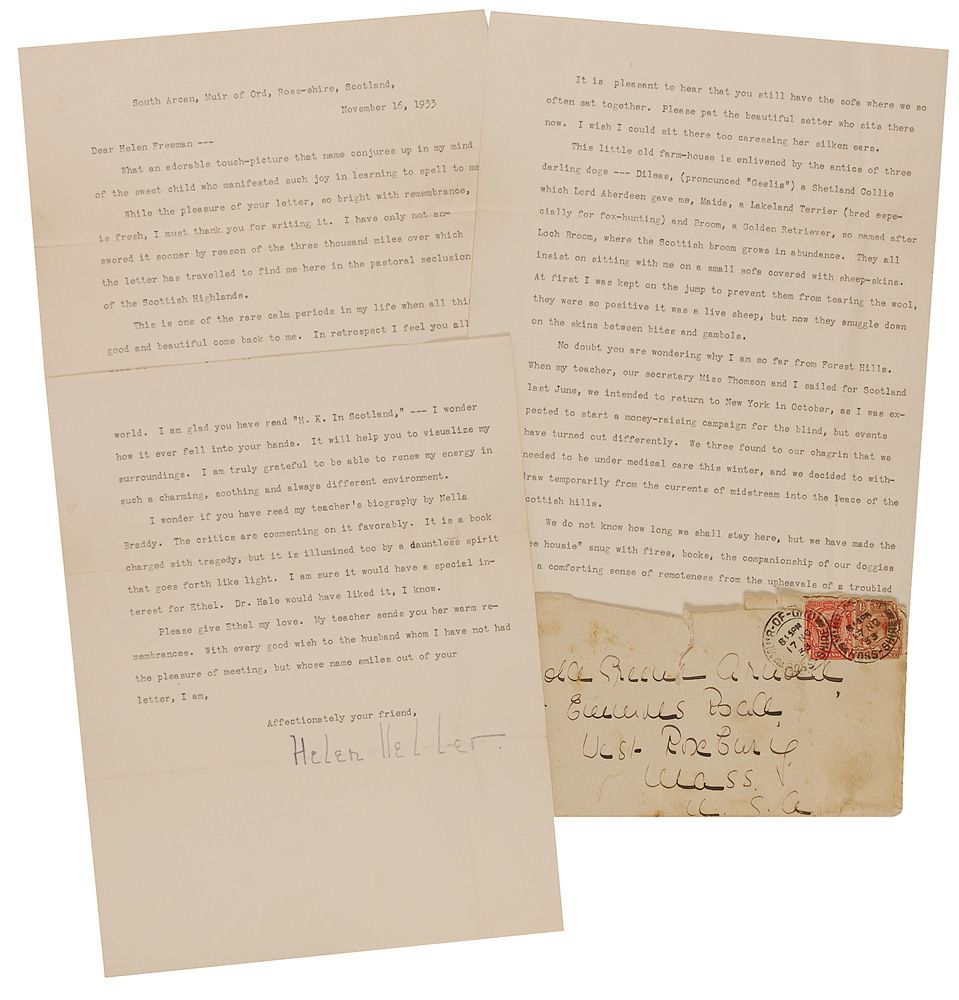 South Arcan, Muir of Ord, Ross-shire, Scotland,
November 16, 1933
Dear Helen Freeman ---
What an adorable touch-picture that name conjures up in my mind
of the sweet child who manifested such joy in learning to spell to me
While the pleasure of your letter, so bright with remembrance,
is fresh, I must thank you for writing it. I have only not an-
swered it sooner by reason of the three thousand miles over which
the letter has travelled to find me here in the pastoral seclusion
of the Scottish Highlands.
This is one of the rare calm periods in my life when all thi
good and beautiful come back to me. In retrospect I feel you all
It is pleasant to hear that you still have the sofa where we so
often sat together. Please pat the beautiful setter who sits there
now. I wish I could sit there too caressing her silken ears.
This little old farm-house is enlivened by the antics of three
darling dogs --- Dileas, (pronounced "Geelis") a Shetland Collie
which Lord Aberdeen gave me, Maida, a Lakeland Terrier (bred espe-
cially for fox-hunting) and Broom, a Golden Retriever, so named after
Loch Broom, where the Scottish broom grows in abundance. They all
insist on sitting with me on a small sofa covered with sheep-skins.
At first I was kept on the jump to prevent them from tearing the wool,
they were so positive it was a live sheep, but now they snuggle down
on the skins between bites and gambols.
No doubt you are wondering why I am so far from Forest Hills.
When my teacher, our secretary Miss Thomson and I sailed for Scotland
last June, we intended to return to New York in October, as I was ex-
pected to start a money-raising campaign for the blind, but events
have turned out differently. We three found to our chagrin that we
needed to be under medical care this winter, and we decided to with-
raw temporarily from the currents of midstream into the peace of the
cottish hills.
We do not know how long we shall stay here, but we have made the
ee housie" snug with fires, books, the companionship of our doggies
a comforting sense of remoteness from the upheavals of a troubled
world. I am glad you have read "H. K. In Scotland," --- I wonder
how it ever fell into your hands. It will help you to visualize my
surroundings. I am truly grateful to be able to renew my energy in
such a charming, soothing and always different environment.
I wonder if you have read my teacher's biography by Nella
Braddy. The critics are commenting on it favorably. It is a book
charged with tragedy, but it is illumined too by a dauntless spirit
that goes forth like light. I am sure it would have a special in-
terest for Ethel. Dr. Hale would have liked it, I know.
Please give Ethel my love. My teacher sends you her warm re-
membrances. With every good wish to the husband whom I have not had
the pleasure of meeting, but whose name smiles out of your
letter, I am,
Affectionately your friend,
Helen Keller.
West Roxbury
Mass.
U. S. A
MUIR-OF-ORD
8 15 PM
17 NO
33
ROSS-SHIRE